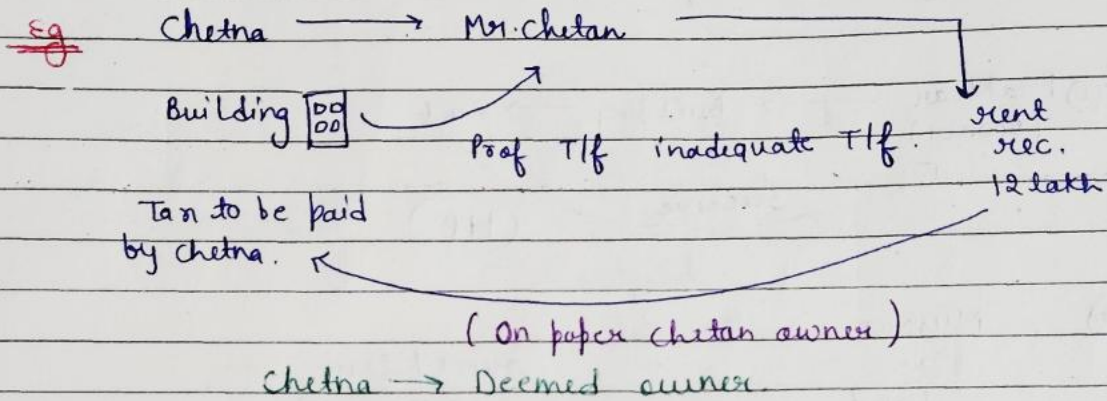 Eg Chetna → Mr. Chetan
Building
Prof T/f inadequate T/f.
rent
rec.
12 lakh
Tax to be paid
by chetna.
(On paper chetan owner)
Chetna → Deemed owner.